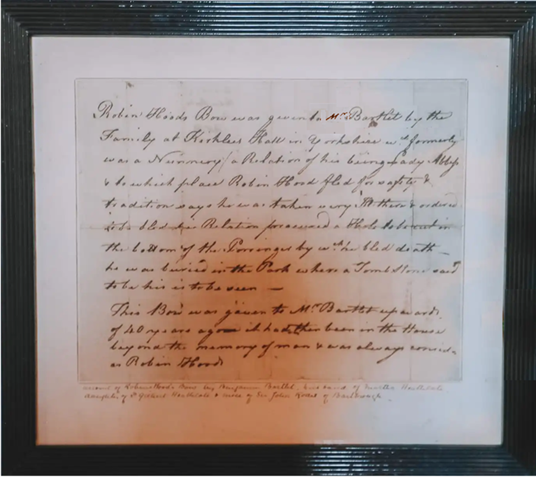 Robin Hoods Bow was given to Mr. Bartlet by the
Family at Kirklees Hall in Yorkshire wch. formerly
was a Nunnery / a Relation of his being Lady Abbess
& to which place Robin Hood fled for safety &
tradition says he was taken very Ill there & ordered
to be bled her Relation procured a Hole to be cut in
the bottom of the Porringer by wch. he bled death
he was buried in the Park where a Tomb Stone said
to be his is to be seen —
This Bow was given to Mr. Bartlet upwards
of 40 years ago & it had then been in the House
beyond the memory of man & was always
as Robin Hoods
of Robin Hood's Bow by Benjamin Bartlet, husband of Martha Heathcote
daughter of Gilbert Heathcote & niece of Sir John Rodes of Barlbrough